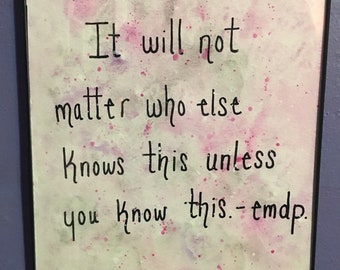 It will not
matter who else
knows this unless
you know this.-emdp.